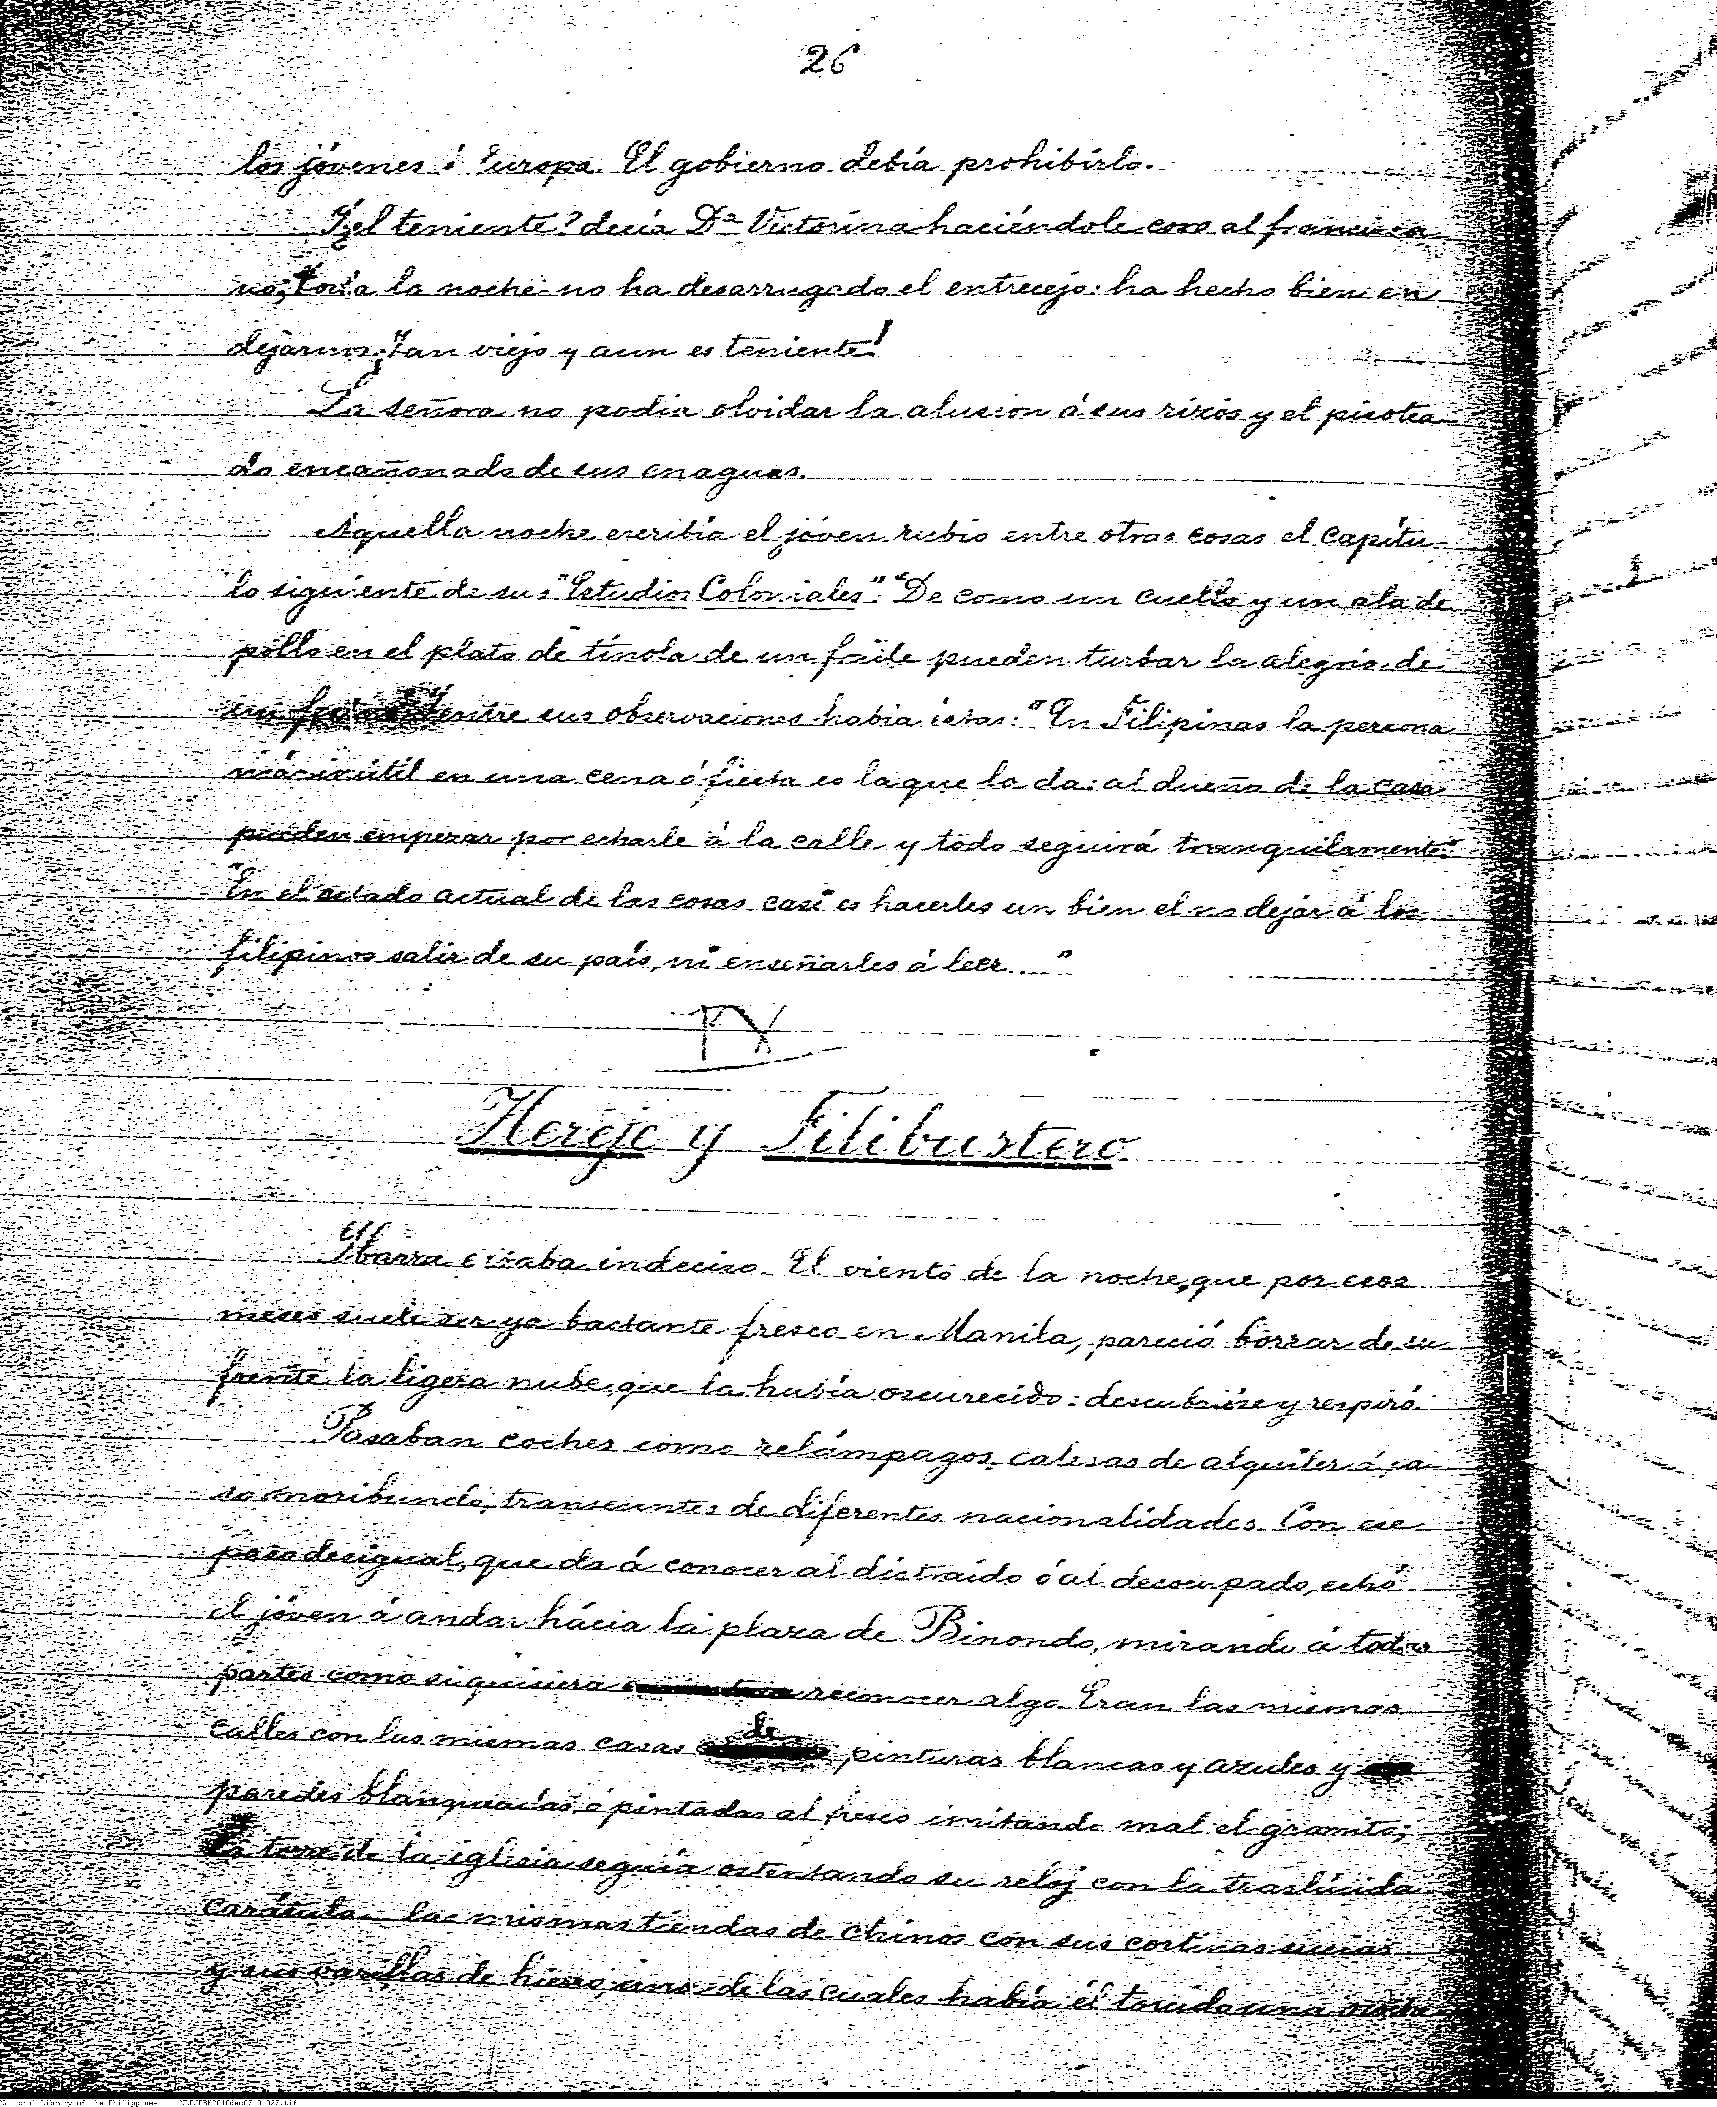 26
los jóvenes á Europa. El gobierno debía prohibirlo.
Y el teniente? decía Dª Victorina haciéndole coro al francisca
no, toda la noche no ha desarrugado el entrecejo: ha hecho bien en
dejarnos ¡Tan viejo y aun es teniente!
La señora no podia olvidar la alusion á sus rizos y el pisotea
do encañonado de sus enaguas.
Aquella noche escribía el jóven rubio entre otras cosas el capítu
lo siguiente de sus "Estudios Coloniales": "De como un cuello y un ala de
pollo en el plato de tinola de un fraile pueden turbar la alegria de
un Y entre sus observaciones habia éstas: "En Filipinas la persona
más inútil en una cena ó fiesta es la que la da: al dueño de la casa
pueden empezar por echarle á la calle y todo seguirá tranquilamente."
"En el estado actual de las cosas casi es hacerles un bien el no dejar á los
filipinos salir de su país, ni enseñarles á leer...."
IV
Hereje y Filibustero
Ibarra estaba indeciso. El viento de la noche, que por esos
meses suele ser ya bastante fresco en Manila, pareció borrar de su
frente la ligera nube que la había oscurecido: descubrióse y respiró.
Pasaban coches como relámpagos, calesas de alquiler á pa
so moribundo, transeuntes de diferentes nacionalidades. Con ese
paso desigual, que da á conocer al distraido ó al desocupado, echó
el jóven á andar hácia la plaza de Binondo, mirando á todas
partes como si quisiera reconocer algo. Eran las mismas
calles con las mismas casas de pinturas blancas y azules y
paredes blanqueadas ó pintadas al fresco imitando mal el granito;
La torre de la iglesia seguía ostentando su reloj con la traslúcida
carátula las mismas tiendas de chinos con sus cortinas sucias
y sus varillas de hierro, una de las cuales había él torcido una noche